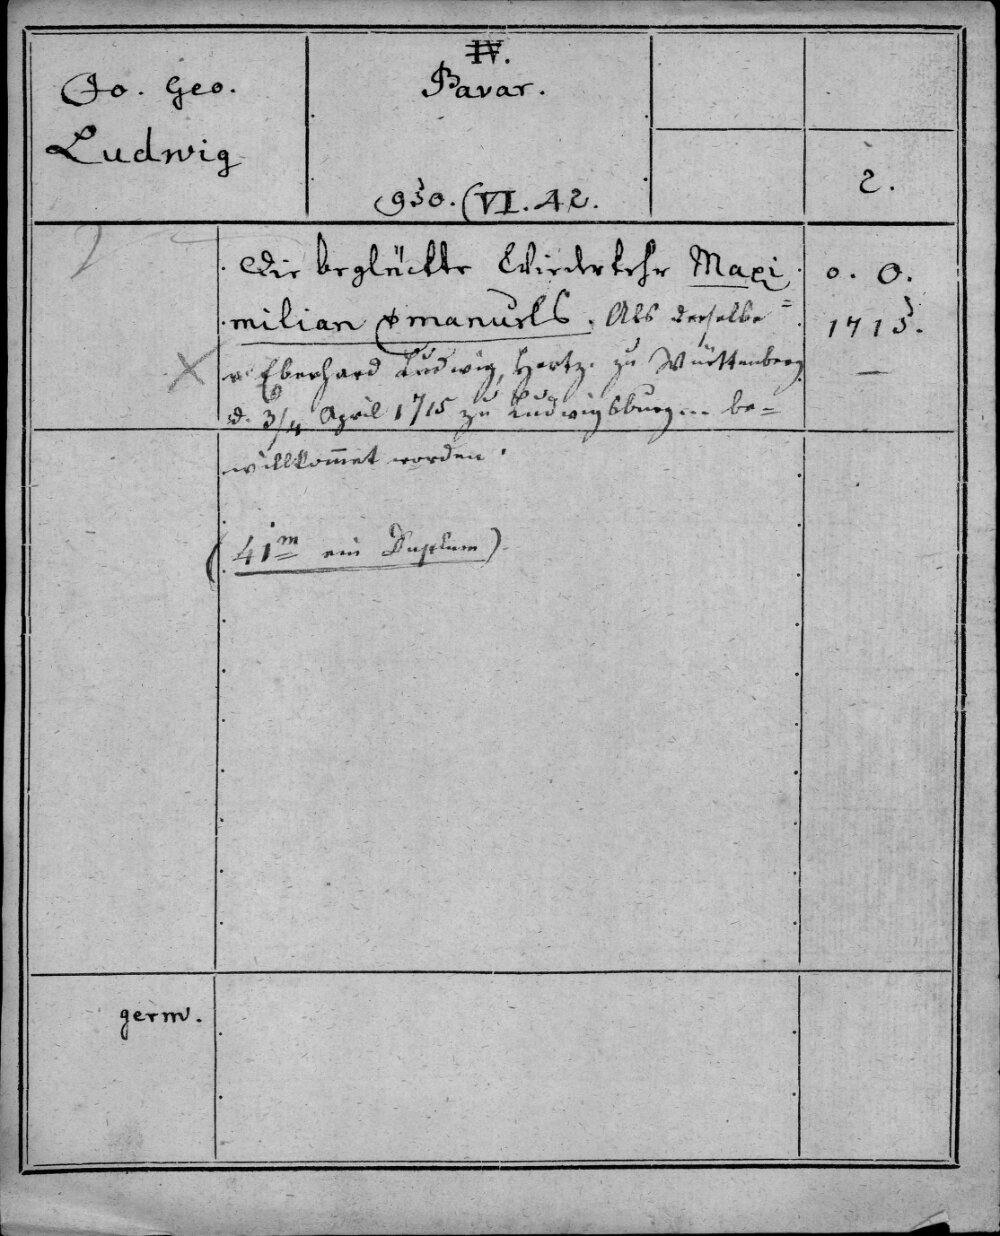 Jo. Geo.
Ludwig
IV.
Bavar.
930. (VI. 42.
2.
Die beglückte Wiederkehr Maxi
milian Emanuels. Als derselbe
v. Eberhard Ludwig, Hertz. zu Württenberg
d. 3/4 April 1715 zu Ludwigsburg ... be=
willkom̅et worden.
o. O.
1715.
(41m ein Duplum)
germ.